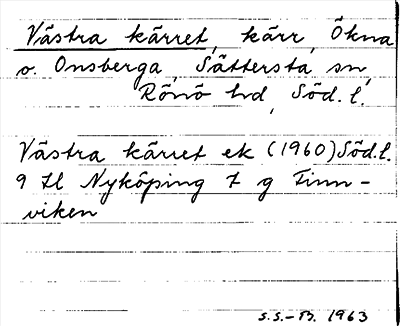 Västra kärret, kärr, Ökna
o. Onsberga, Sättersta sn,
Rönö hd, Söd. l.
Västra kärret ek (1960) Söd. l.
9 H Nyköping 7 g Finn-
viken
S.S.-B. 1963